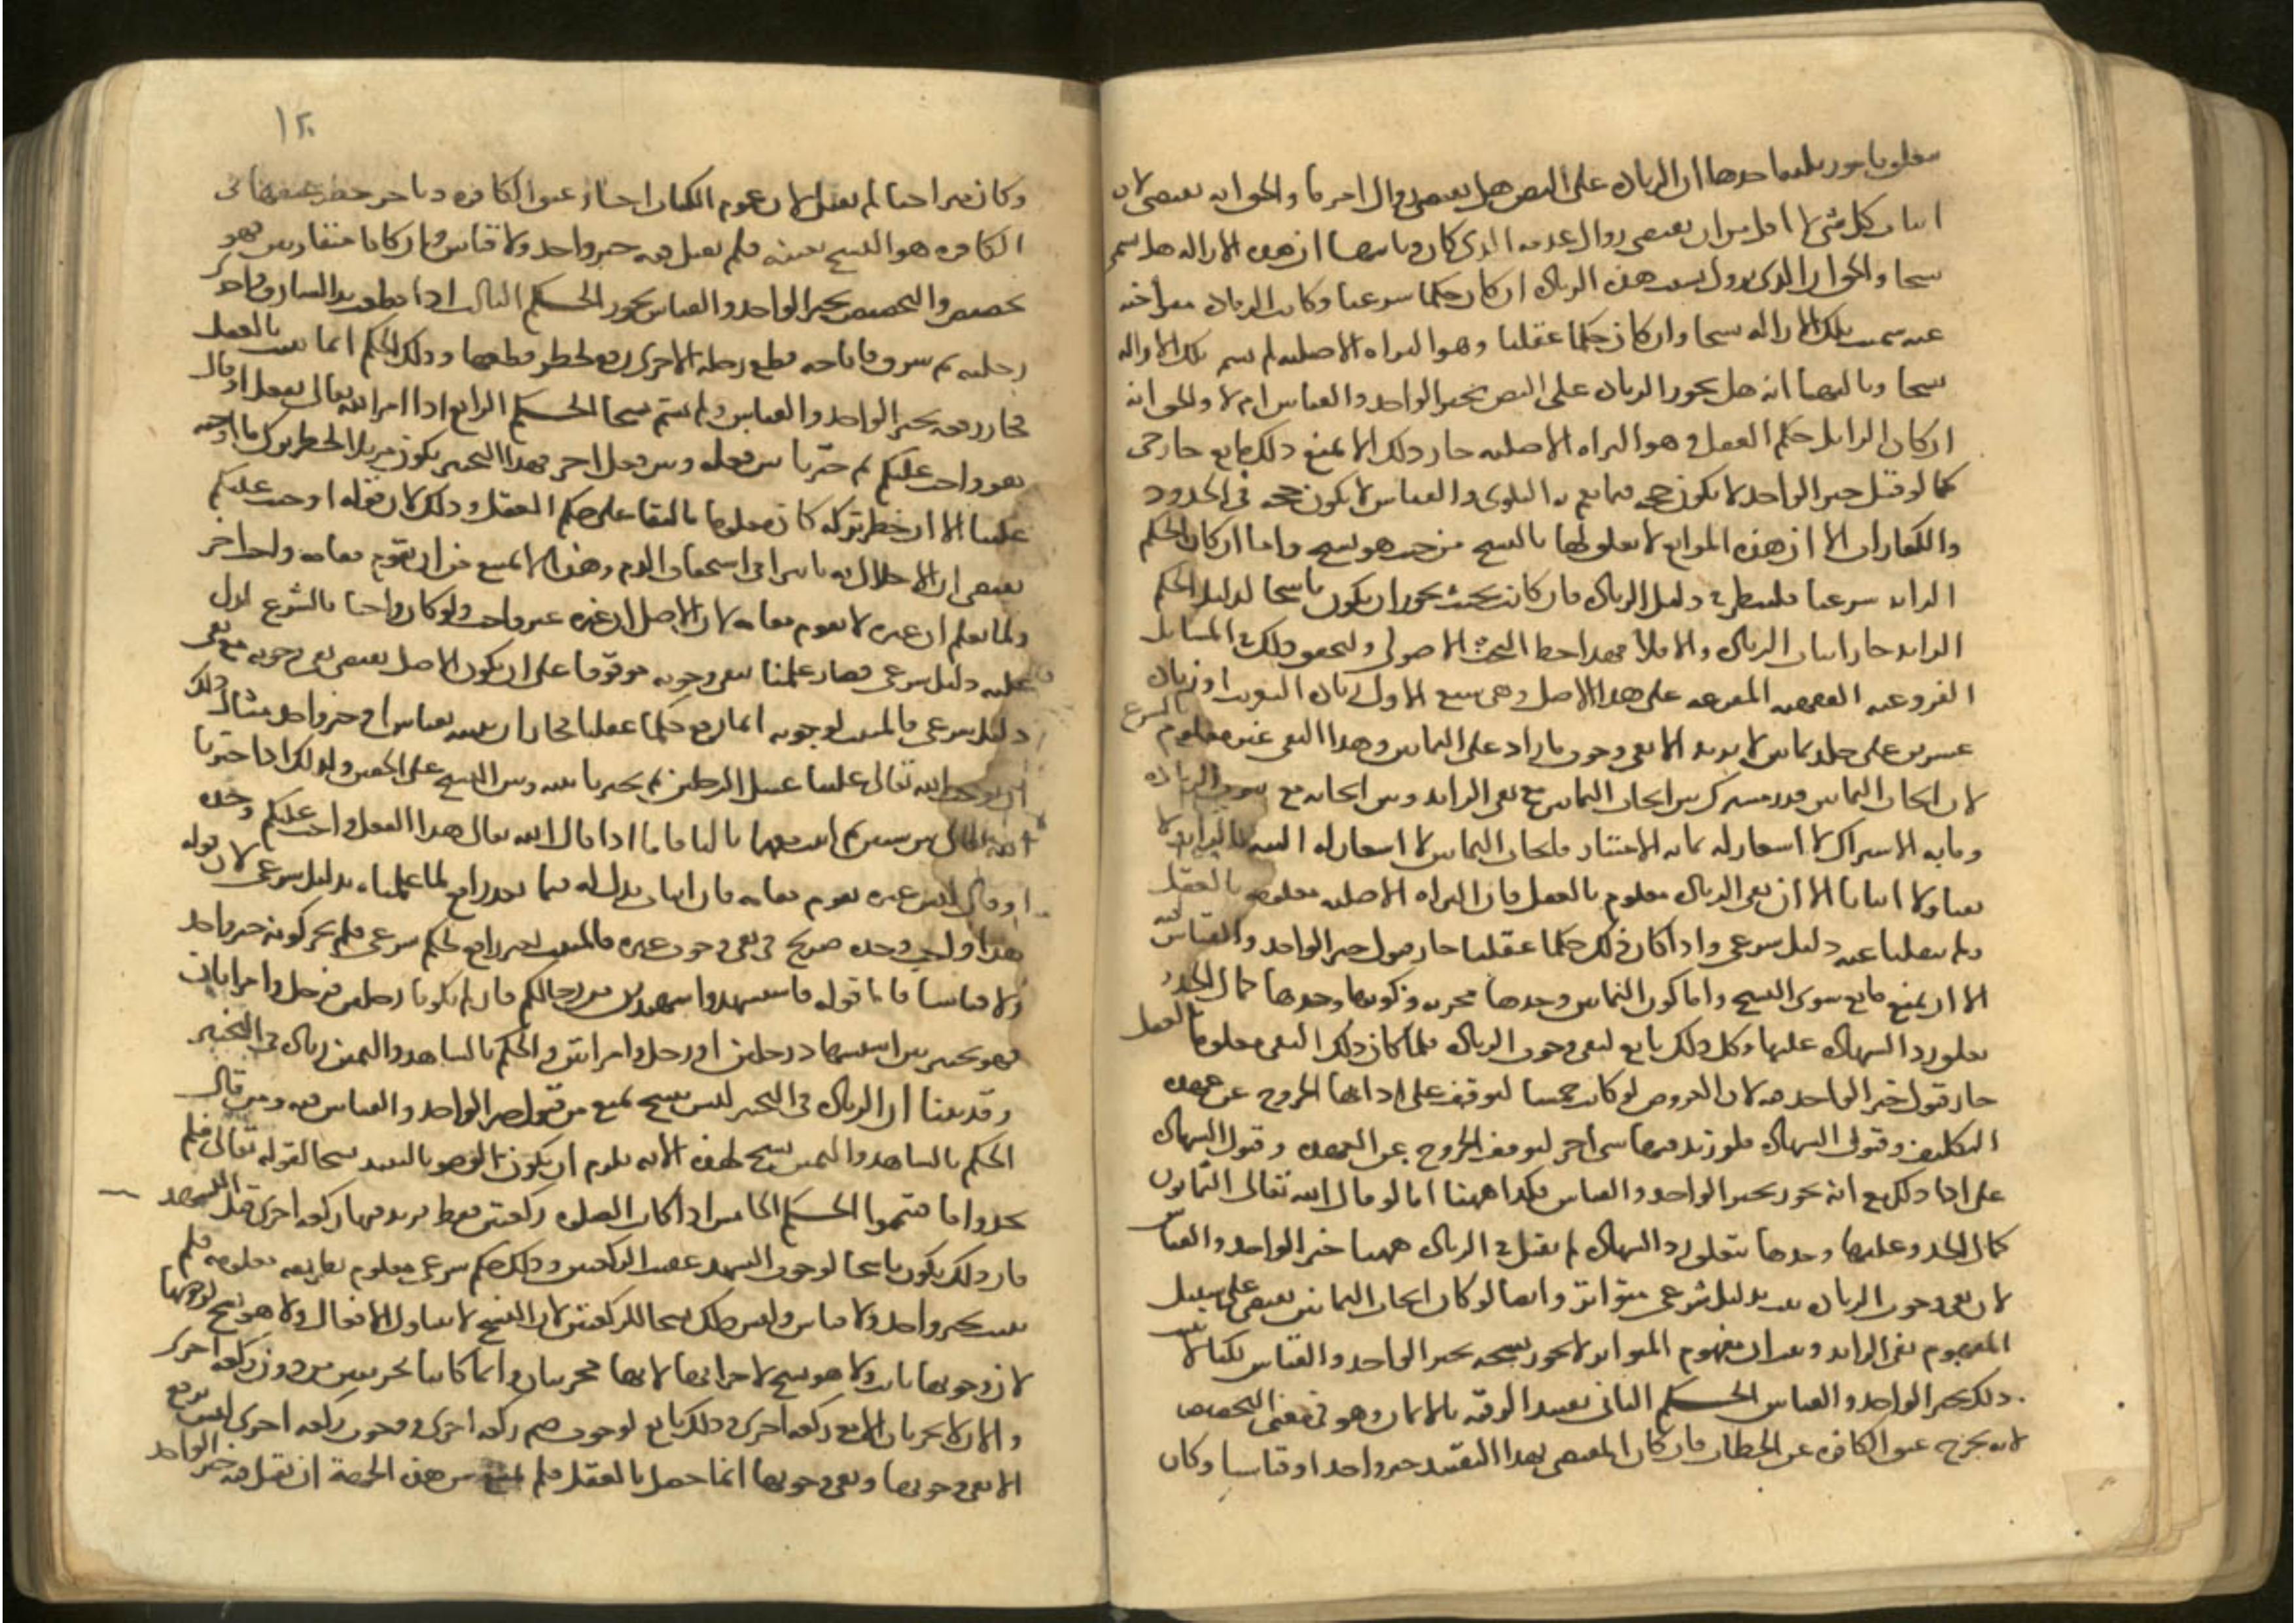 يتعلق بأمور ثلاثة احدها ان الزيادة على النص هل تقتضي زوال امر ما والحق انه تقتضي لان
اثبات كل شي لا اقل من ان يقتضي زوال عدمه الذي كان وثانيها ان هذه الازالة هل تسمى
نسخا والحق ان الذي يزول بسبب هذه الزيادة ان كان حكما شرعيا وكانت الزيادة متراخية
عنه سميت تلك الازالة نسخا وان كان حكما عقليا وهو البراة الاصلية لم تسم تلك الازالة
نسخا وثالثها انه هل يجوز الزيادة على النص بخبر الواحد والقياس ام لا والحق انه
ان كان الزايل حكم العقل وهو البراة الاصلية جاز ذلك الا ان يمنع ذلك مانع خارجي
كما لو قيل خبر الواحد لا يكون حجة فيما تعم به البلوى والقياس لا يكون حجة في الحدود
والكفارات الا ان هذه الموانع لا تعلق لها بالنسخ من حيث هو نسخ واما ان كان الحكم
الزايد شرعيا فلينظر في دليل الزيادة فان كانت بحيث يجوز ان يكون ناسخا لدليل الحكم
الزايد جاز اثبات الزيادة والا فلا فهذا حظ البحث الاصولي ولنحقق ذلك في المسايل
الفروعية الفقهية المفرعة على هذا الاصل وهي سبع الاول زيادة التغريب او زيادة
عشرين على جلد ثمانين لا يزيد الا نفي وجوب ما زاد على الثمانين وهذا النفي غير معلوم بالشرع
لان ايجاب الثمانين قدر مشترك بين ايجاب الثمانين مع نفي الزايد وبين ايجابه مع ثبوت الزيادة
وما به الاشتراك لا اشعار له بما به الامتياز فايجاب الثمانين لا اشعار له البتة بالزايد لا
نفيا ولا اثباتا الا ان نفي الزيادة معلوم بالعقل فان البراة الاصلية معلومة بالعقل
ولم ينقلنا عنه دليل شرعي واذا كان ذلك حكما عقليا جاز قبول خبر الواحد والقياس فيه
الا ان يمنع مانع سوى النسخ واما كون الثمانين وحدها مجزية وكونها وحدها كمال الحد و
تعلق رد الشهادة عليها وكل ذلك تابع لنفي وجوب الزيادة فلما كان ذلك النفي معلوما بالعقل
جاز قبول خبر الواحد فيه لان الفروض لو كانت خمسا لتوقف على ادائها الخروج عن عهدة
التكليف وقبول الشهادة فلو زيد فيها شي اخر لتوقف الخروج عن العهدة وقبول الشهادة
على ادا ذلك مع انه يجوز بخبر الواحد والقياس فكذا ههنا اما لو قال الله تعالى الثمانون
كمال الحد وعليها وحدها يتعلق رد الشهادة لم يقبل في الزيادة ههنا خبر الواحد والقياس
لان نفي وجوب الزيادة ثبت بدليل شرعي متواتر وايضا لو كان ايجاب الثمانين يقتضي على سبيل
المفهوم نفي الزايد وثبت ان مفهوم المتواتر لا يجوز نسخه بخبر الواحد والقياس لكنا لا نثبت
ذلك بخبر الواحد والقياس الحكم الثاني تقييد الرقبة بالايمان وهو في معنى التخصيص
لانه يخرج عتق الكافرة عن الخطاب فان كان المقتضي بهذا التقييد خبر واحد او قياسا وكان
١٢٠
وكان متراخيا لم يقبل لان عموم الكتاب اجاز عتق الكافرة وتاخر حظر عتقها في
الكافرة هو النسخ بعينه فلم يقبل فيه خبر واحد ولا قياس وان كانا متقارنين فهو
تخصيص والتخصيص بخبر الواحد والقياس يجوز الحكم الثالث اذا قطعت يد السارق واحدى
رجليه ثم سرق فاباحة قطع رجله الاخرى رفع لحظر قطعها وذلك الحكم انما ثبت بالعقل
فجاز رفعه بخبر الواحد والقياس ولم يسم نسخا الحكم الرابع اذا امر الله تعالى بفعل او قال
هو واجب عليكم ثم خيرنا بين فعله وبين فعل اخر فهذا التخيير يكون مزيلا لحظر ترك ما اوجبه
علينا الا ان حظر تركه كان معلوما بالبقا على حكم العقل وذلك لان قوله اوجبت عليكم
يقتضي ان للاخلال به تاثيرا في استحقاق الذم وهذا لا يمنع من ان يقوم مقامه واجب اخر
وانما يعلم ان غيره لا يقوم مقامه لان الاصل ان غيره غير واجب ولو كان واجبا بالشرع لدل
عليه دليل شرعي فصار علمنا بنفي وجوبه موقوفا على ان يكون الاصل يقتضي نفي وجوبه مع نفي
دليل شرعي فالمثبت لوجوبه انما رفع حكما عقليا فجاز ان يثبته بقياس او خبر واحد مثال ذلك
ان يوجب الله تعالى علينا غسل الرجلين ثم يخيرنا بينه وبين المسح على الخفين وكذلك اذا خيرنا
الله تعالى بين شيين ثم اثبت معهما ثالثا فاما اذا قال الله تعالى هذا الفعل واجب عليكم وحده
او قال ليس غيره يقوم مقامه فان اثبات بدل له فيما بعد رافع لما علمناه بدليل شرعي لان قوله
هذا واجب وحده صريح في نفي وجوب غيره فالمثبت لغيره رافع لحكم شرعي فلم يجز كونه خبر واحد
ولا قياسا فاما قوله فاستشهدوا شهيدين من رجالكم فان لم يكونا رجلين فرجل وامراتان
فهو تخيير بين استشهاد رجلين او رجل وامراتين والحكم بالشاهد واليمين زيادة في التخيير
وقد بينا ان الزيادة في التخيير ليس بنسخ يمنع من قبول خبر الواحد والقياس فيه ومن قال
الحكم بالشاهد واليمين نسخ لهذه الاية يلزمه ان يكون الوضو بالنبيذ نسخا لقوله تعالى فلم
تجدوا ما فتيمموا الحكم الخامس اذا كانت الصلوة ركعتين فقط فزيد فيها ركعة اخرى قبل التشهد
فان ذلك يكون ناسخا لوجوب التشهد عقيب الركعتين وذلك حكم شرعي معلوم بطريقة معلومة فلم
يثبت بخبر واحد ولا قياس وليس ذلك نسخا للركعتين لان النسخ لا يتناول الافعال ولا هو نسخ لوجوبهما
لان وجوبها ثابت ولا هو نسخ لاجزائها لانها مجزيتان وانما كانتا تجزيتين من دون ركعة اخرى
والان لا تجزيان الا مع ركعة اخرى وذلك تابع لوجوب ضم ركعة اخرى ووجوب ركعة اخرى ليس يرفع
الا نفي وجوبها ونفي وجوبها انما حصل بالعقل فلم يمتنع من هذه الجهة ان يقبل فيه خبر الواحد